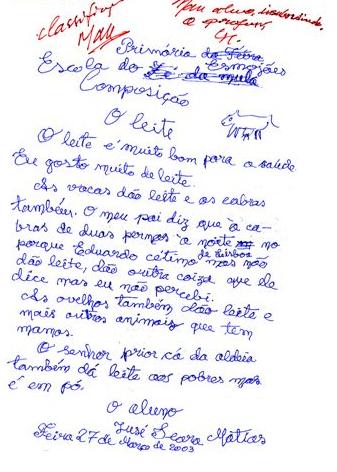 classificação
Mau
Mau aluno, insubordinado,
o profess.
Primária da Feira
Escola do Fé da mula Esmojães
Composição
O leite
O leite é muito bom para a saúde.
Eu gosto muito de leite.
As vacas dão leite e as cabras
também. O meu pai diz que à ca-
bras de duas pernas à noite no
porque Eduardo cétimo de Lisboa mas não
dão leite, dão outra coiza que ele
dice mas eu não percebi.
As ovelhas também dão leite e
mais outros animais que têm
mamas.
O senhor prior cá da aldeia
também dá leite aos pobres mas
é em pó.
O aluno
José Seara Matias
Feira 27 de Março de 2003